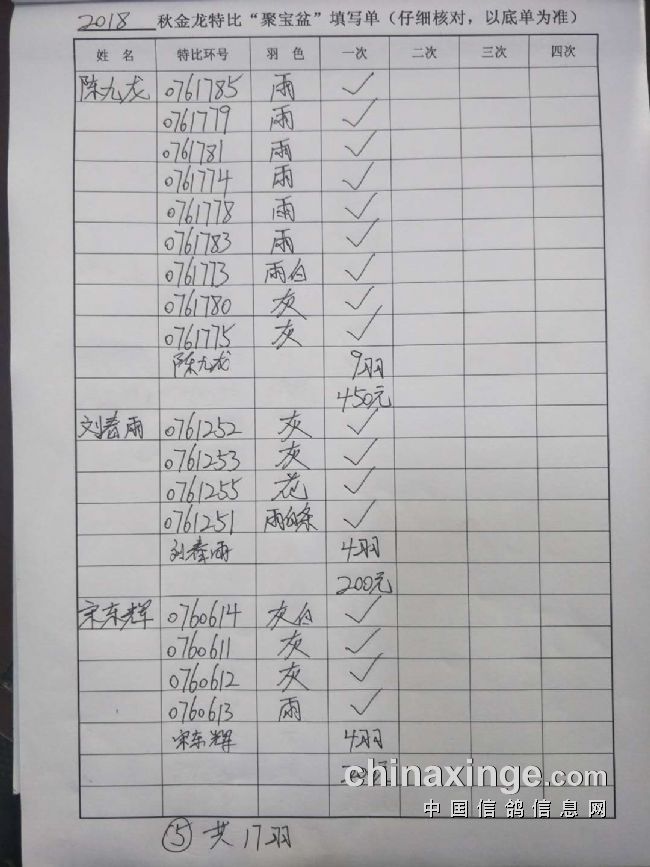 2018 秋金龙特比“聚宝盆”填写单（仔细核对，以底单为准）
姓 名 特比环号 羽 色 一次 二次 三次 四次
陈九龙 0761785 雨 ✓
0761779 雨 ✓
0761781 雨 ✓
0761774 雨 ✓
0761778 雨 ✓
0761783 雨 ✓
0761773 雨白 ✓
0761780 灰 ✓
0761775 灰 ✓
陈九龙 9羽
450元
刘春雨 0761252 灰 ✓
0761253 灰 ✓
0761255 花 ✓
0761251 雨白条 ✓
刘春雨 4羽
200元
宋东辉 0760614 灰白 ✓
0760611 灰 ✓
0760612 灰 ✓
0760613 雨 ✓
宋东辉 4羽
chinaxinge.com
中国信鸽信息网
⑤ 共17羽